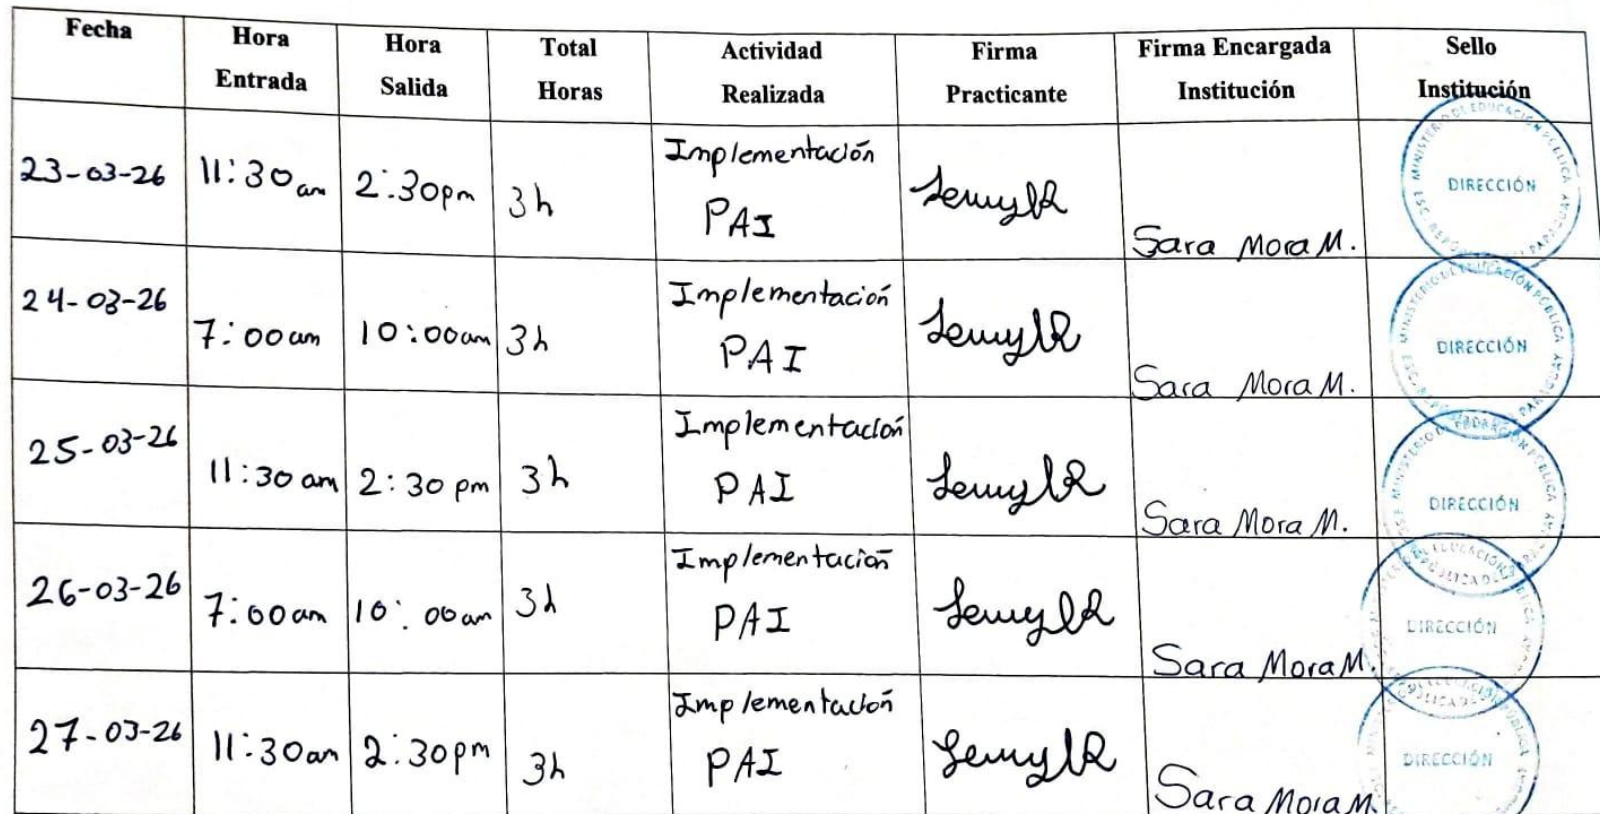 Fecha Hora Entrada Hora Salida Total Horas Actividad Realizada Firma Practicante Firma Encargada Institución Sello Institución
23-03-26 11:30am 2:30pm 3h Implementación PAI Sara Mora M. MINISTERIO DE EDUCACIÓN PÚBLICA DIRECCIÓN
24-03-26 7:00am 10:00am 3h Implementación PAI Sara Mora M. MINISTERIO DE EDUCACIÓN PÚBLICA DIRECCIÓN
25-03-26 11:30am 2:30pm 3h Implementación PAI Sara Mora M. DIRECCIÓN
26-03-26 7:00am 10:00am 3h Implementación PAI Sara Mora M. DIRECCIÓN
27-03-26 11:30am 2:30pm 3h Implementación PAI Sara Mora M. DIRECCIÓN